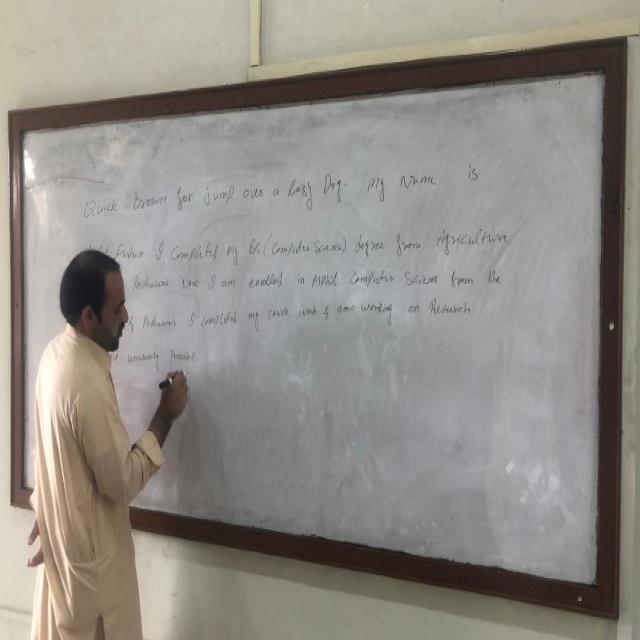 Quick brown for jump over a Lazy Dog. My Name is
I Completed my Bs (Computer Science) degree from Agriculture
Peshawar Now I am enrolled in MPhil Computer Science from the
Peshawar I completed my course work & now working on Research